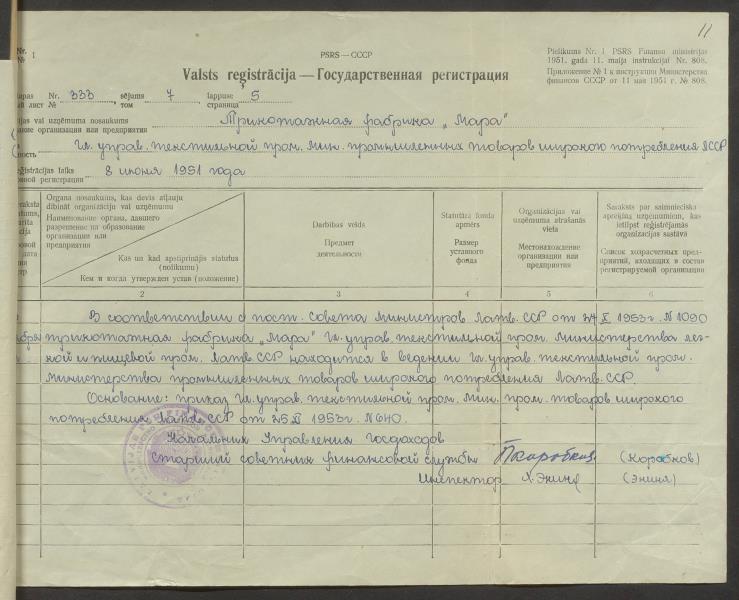 11
Nr. 1
№
PSRS — СССР
Pielikums Nr. 1 PSRS Finansu ministrijas
1951. gada 11. maija instrukcijai Nr. 808.
Приложение № 1 к инструкции Министерства
финансов СССР от 11 мая 1951 г. № 808.
Valsts reģistrācija — Государственная регистрация
lapas Nr. 333 sējums 7 lappuse 5
лист № том страница
jas vai uzņēmuma nosaukums Трикотажная фабрика „Мара"
ание организации или предприятия
ность Гл. управ. текстильной пром. Мин. промышленных товаров широкого потребления ЛССР
reģistrācijas laiks 8 июня 1951 года
регистрации
Organa nosaukums, kas devis atļauju
dibināt organizāciju vai uzņēmumu
Наименование органа, давшего
разрешение на образование
организации или
предприятия
Kas un kad apstiprinājis statutus
(nolikumu)
Кем и когда утвержден устав (положение)
Darbības veids
Предмет
деятельности
Statutāra fonda
apmērs
Размер
уставного
фонда
Organizācijas vai
uzņēmuma atrašanās
vieta
Местонахождение
организации или
предприятия
Saraksts par saimnieciska
aprēķina uzņēmumiem, kas
ietilpst reģistrējamās
organizacijas sastāvā
Список хозрасчетных пред-
приятий, входящих в состав
регистрируемой организации
2 3 4 5 6
В соответствии с пост. Совета Министров Латв. ССР от 24 X 1953 г. N 1090
трикотажная фабрика „Мара" Гл. управ. текстильной пром. Министерства лег-
кой и пищевой пром. Латв. ССР находится в ведении Гл. управ. текстильной пром.
Министерства промышленных товаров широкого потребления Латв. ССР.
Основание: приказ Гл. управ. текстильной пром. Мин. пром. товаров широкого
потребления Латв. ССР от 25 XI 1953 г. N 640.
Начальник Управления Госдоходов
Старший советник финансовой службы (Коробков)
Инспектор Х. Эниня (Эниня)